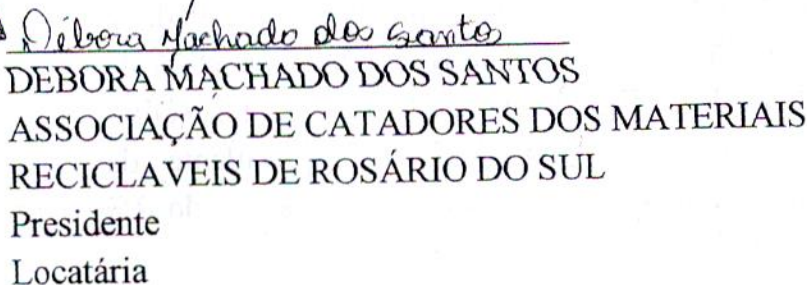 Débora Machado dos Santos
DEBORA MACHADO DOS SANTOS
ASSOCIAÇÃO DE CATADORES DOS MATERIAIS
RECICLAVEIS DE ROSÁRIO DO SUL
Presidente
Locatária